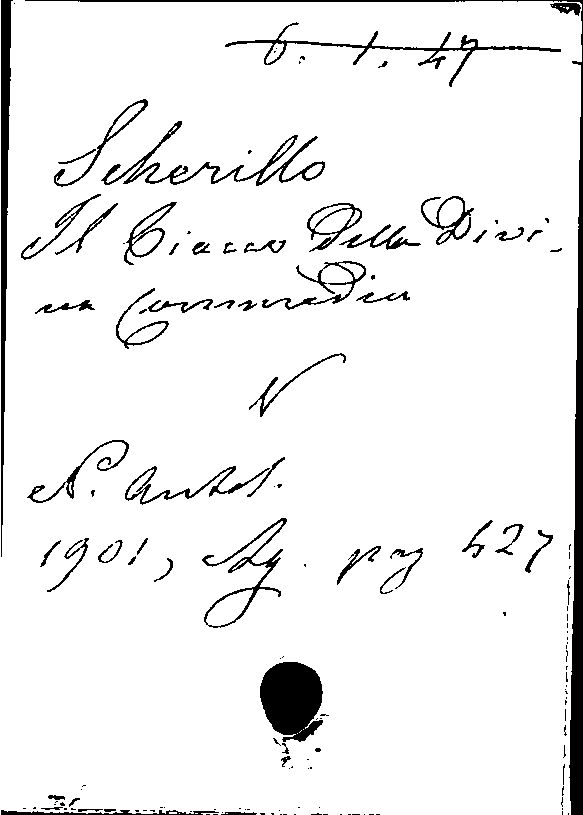 6. 1. 47
Scherillo
Il Ciacco Della Divi-
na Commedia
N. Antol.
1901, Ag. pag 427